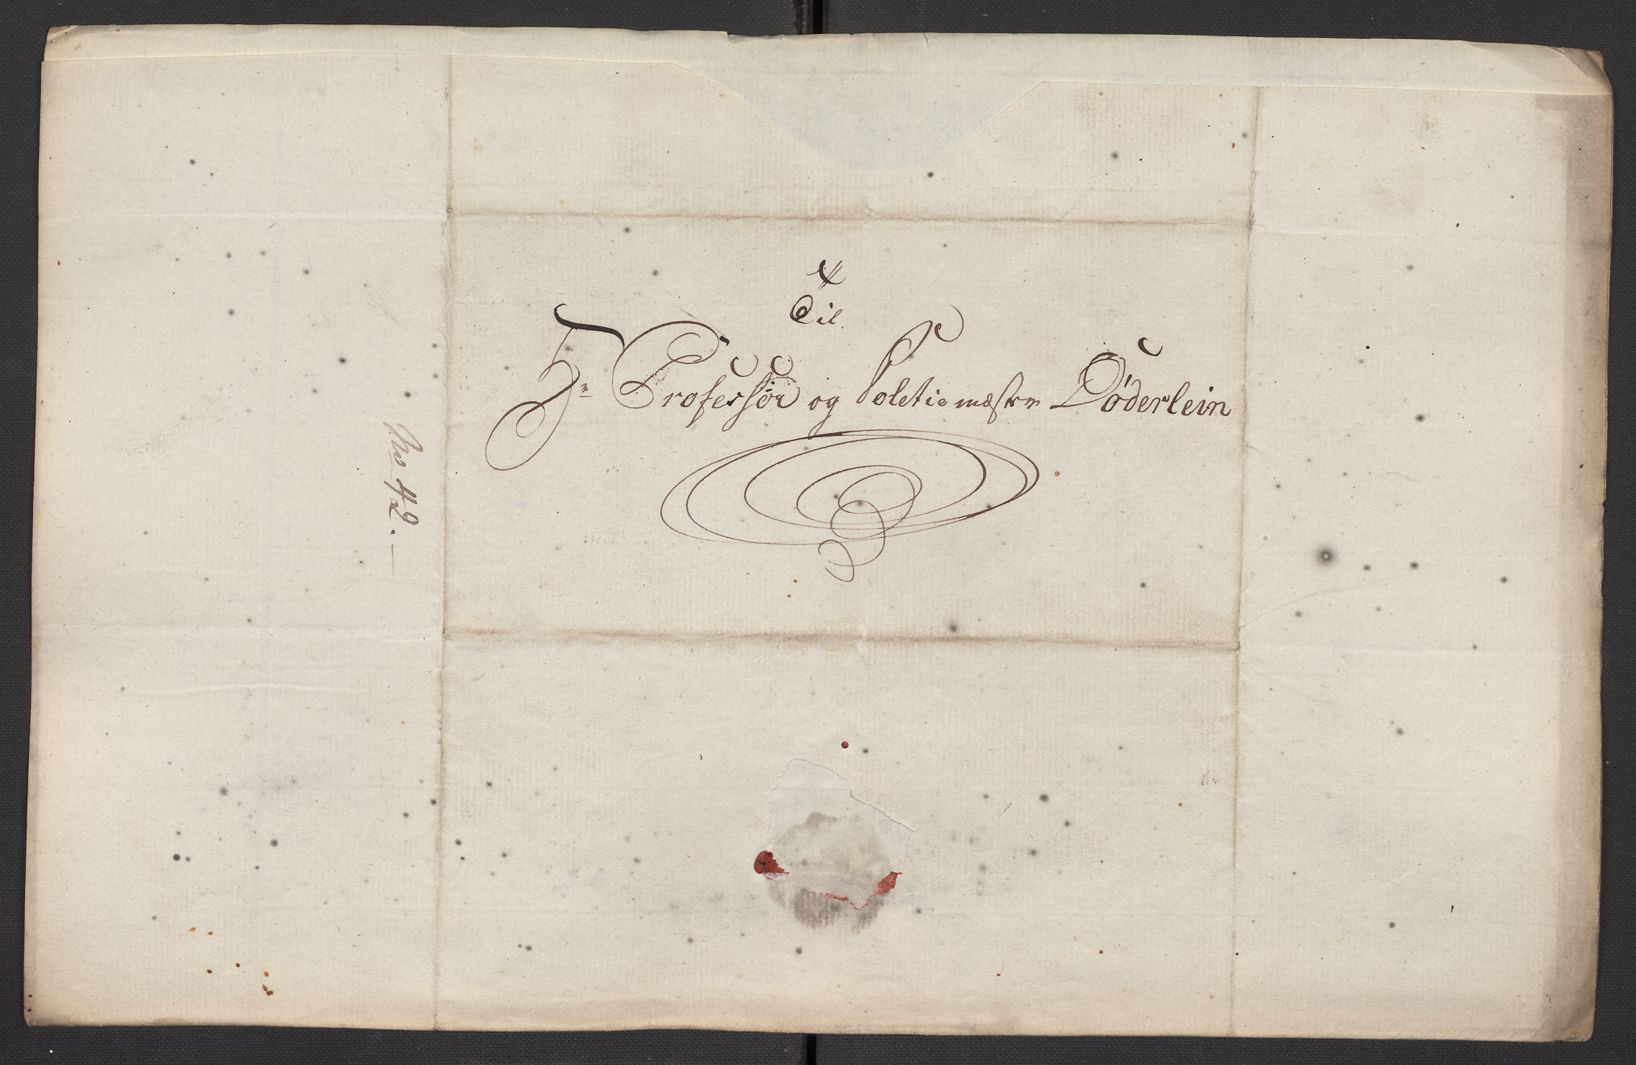 Til
Hr Professor og Politiemæster Døderlein
No 42.